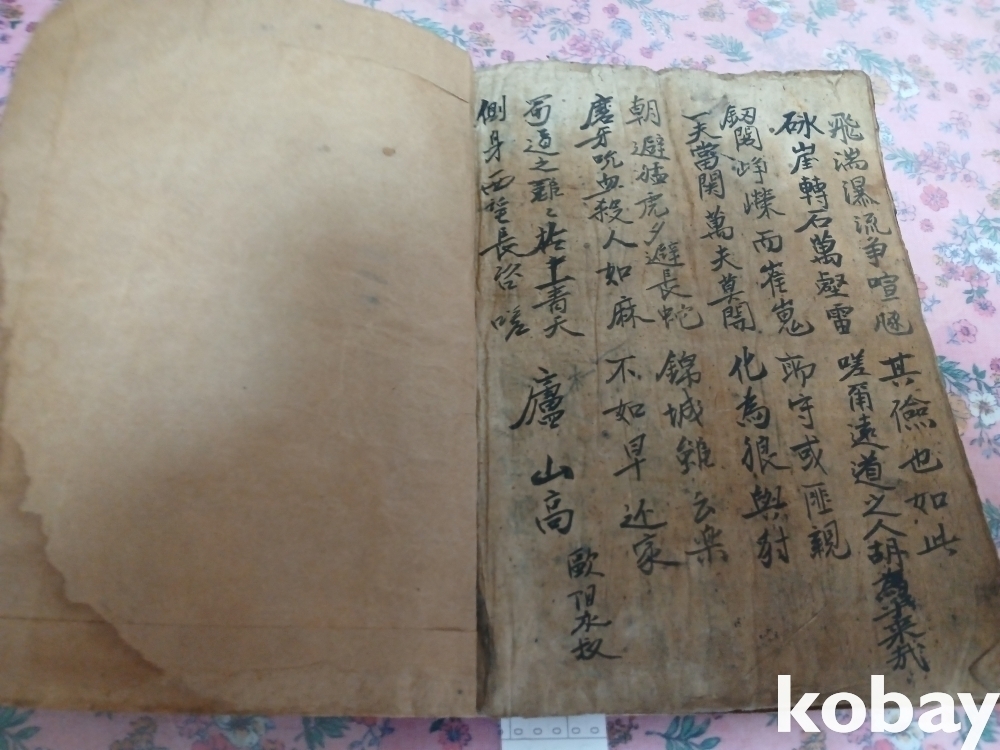 飛湍瀑流争喧豗
砅崖轉石萬壑雷
其儉也如此
嗟爾遠道之人胡為乎来哉
釰閣崢嶸而崔嵬
一夫當関萬夫莫開
所守或匪親
化為狼與豺
朝避猛虎夕避長蛇
磨牙吮血殺人如麻
錦城雖云楽
不如早还家
蜀道之難〻扵上青天
側身西望長咨嗟
廬山高
歐阳永叔
kobay